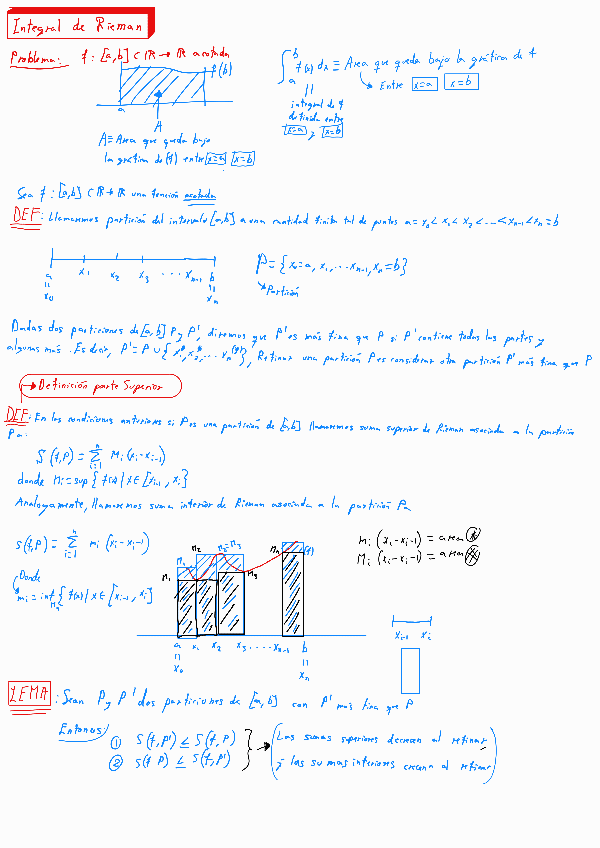 Integral de Rieman
Problema: f: [a,b] ⊂ ℝ → ℝ acotada
f(b)
a
A
A ≡ Area que queda bajo
la gráfica de (f) entre x=a x=b
∫_a^b f(x) dx ≡ Area que queda bajo la gráfica de f
Entre x=a x=b
integral de f
definida entre
x=a y x=b
Sea f: [a,b] ⊂ ℝ → ℝ una función acotada
DEF: Llamaremos partición del intervalo [a,b] a una cantidad finita tal de puntos a = x₀ < x₁ < x₂ < ... < xₙ₋₁ < xₙ = b
a x₁ x₂ x₃ ... xₙ₋₁ b
x₀ xₙ
P = { x₀ = a, x₁, ... xₙ₋₁, xₙ = b }
Partición
Dadas dos particiones de [a,b] P y P', diremos que P' es más fina que P si P' contiene todas las partes y
algunas más. Es decir, P' = P ∪ { x₁*, x₂*, ... }, Refinar una partición P es considerar otra partición P' más fina que P
Definición parte Superior
DEF: En las condiciones anteriores si P es una partición de [a,b] llamaremos suma superior de Rieman asociada a la partición
P a:
S(f,P) = Σ_{i=1}^n Mi (xi - xi-1)
donde Mi = sup { f(x) | x ∈ [xi-1, xi] }
Analogamente, llamaremos suma inferior de Rieman asociada a la partición P a
s(f,P) = Σ_{i=1}^n mi (xi - xi-1)
Donde
mi = inf { f(x) | x ∈ [xi-1, xi] }
M₁ M₂ M₂=M₃ m₃ Mₙ
a x₁ x₂ x₃ .... xₙ₋₁ b
x₀ xₙ
mi (xi - xi-1) = area
Mi (xi - xi-1) = area
xi-1 xi
LEMA: Sean P y P' dos particiones de [a,b] con P' más fina que P
Entonces
① S(f,P') ≤ S(f,P)
② s(f,P) ≤ s(f,P')
Las sumas superiores decrecen al refinar
y las sumas inferiores crecen al refinar